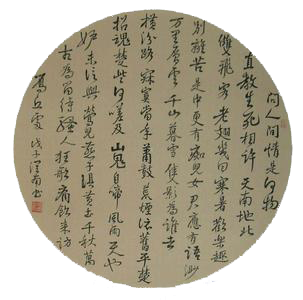 問人間情是何物
直教生死相許天南地北
雙飛客老翅幾回寒暑歡樂趣
別離苦是中更有痴兒女君應有語渺
萬里層雲千山暮雪隻影為誰去
橫汾路寂寞當年簫鼓荒煙依舊平楚
招魂楚些何嗟及山鬼自啼風雨天也
妒未信與鶯兒燕子俱黃土千秋萬
古為留待騷人狂歌痛飲來訪
雁丘處 戊子 南書